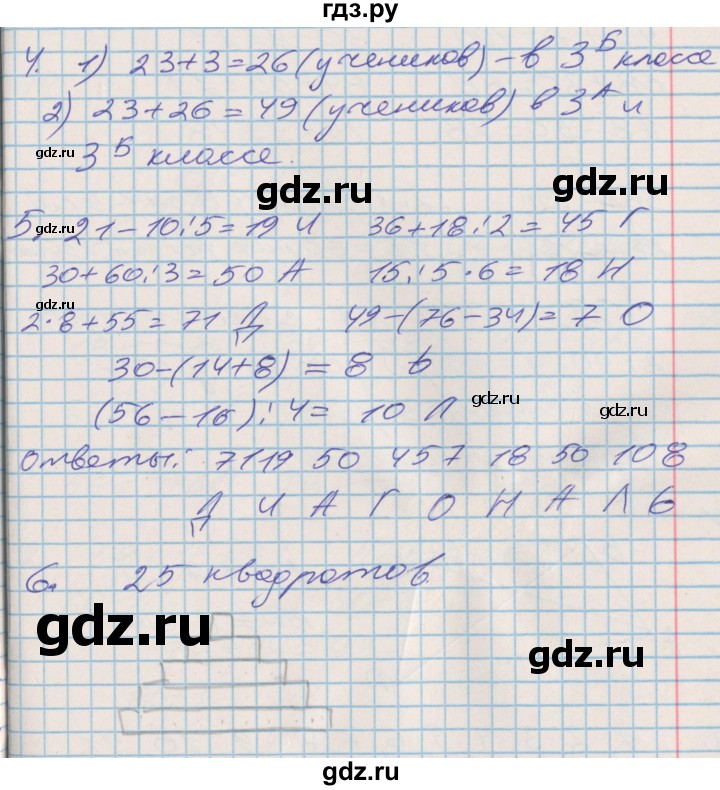 гдз.ру
4. 1) 23+3=26 (учеников) – в 3Б классе
2) 23+26=49 (учеников) в 3А и
gdz.ru
3Б классе.
gdz.ru gdz.ru
5. 21-10:5=19 И 36+18:2=45 Г
30+60:3=50 А 15:5·6=18 Н
gdz.ru
2·8+55=71 Д 49-(76-34)=7 О
30-(14+8)=8 Ь
gdz.ru
(56-16):4=10 Л gdz.ru
ответы: 71 19 50 45 7 18 50 10 8
Д И А Г О Н А Л Ь
6. 25 квадратов.
gdz.ru gdz.ru
gdz.ru